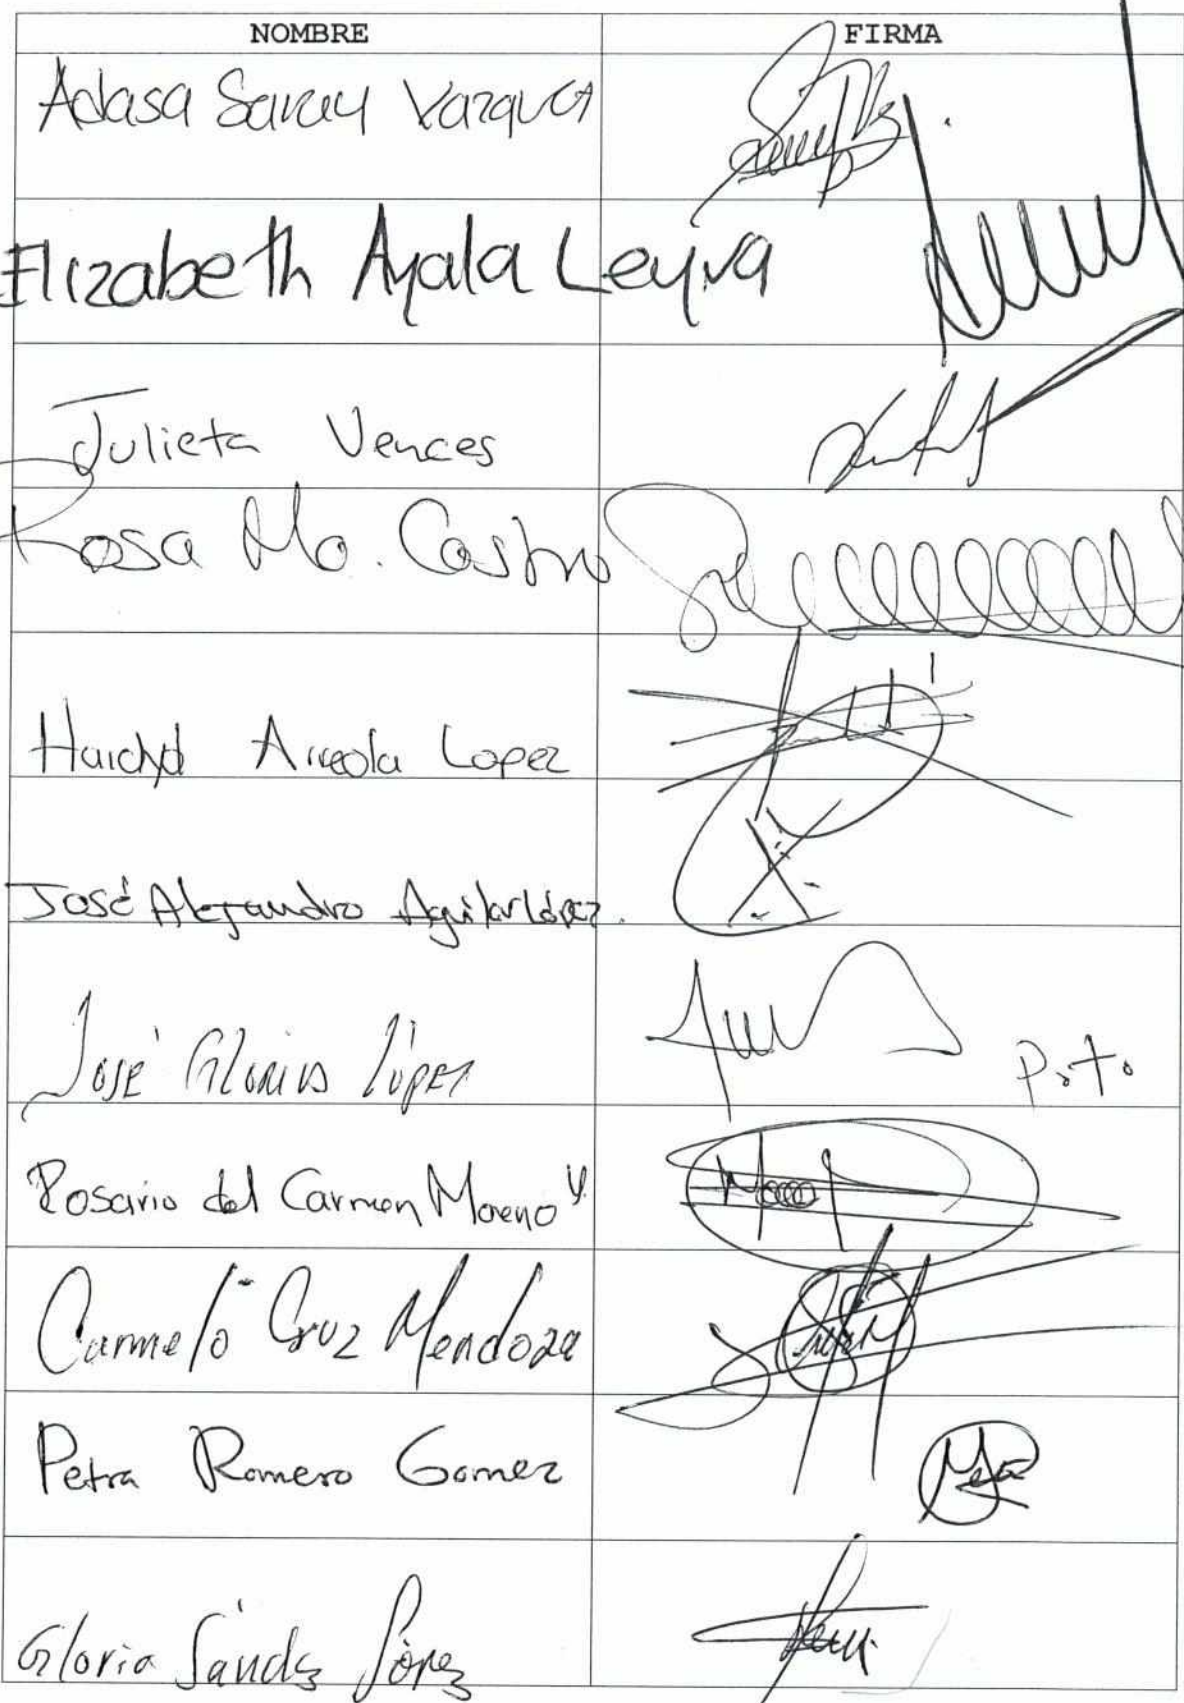 NOMBRE FIRMA
Adasa Saray Vazquez
Elizabeth Ayala Leyva
Julieta Vences
Rosa Ma. Castro
Haidyd Arreola Lopez
José Alejandro Aguilar López.
José Glorius López Porto
Rosario del Carmen Moreno V.
Carmelo Cruz Mendoza
Petra Romero Gomez
Gloria Sánchez López